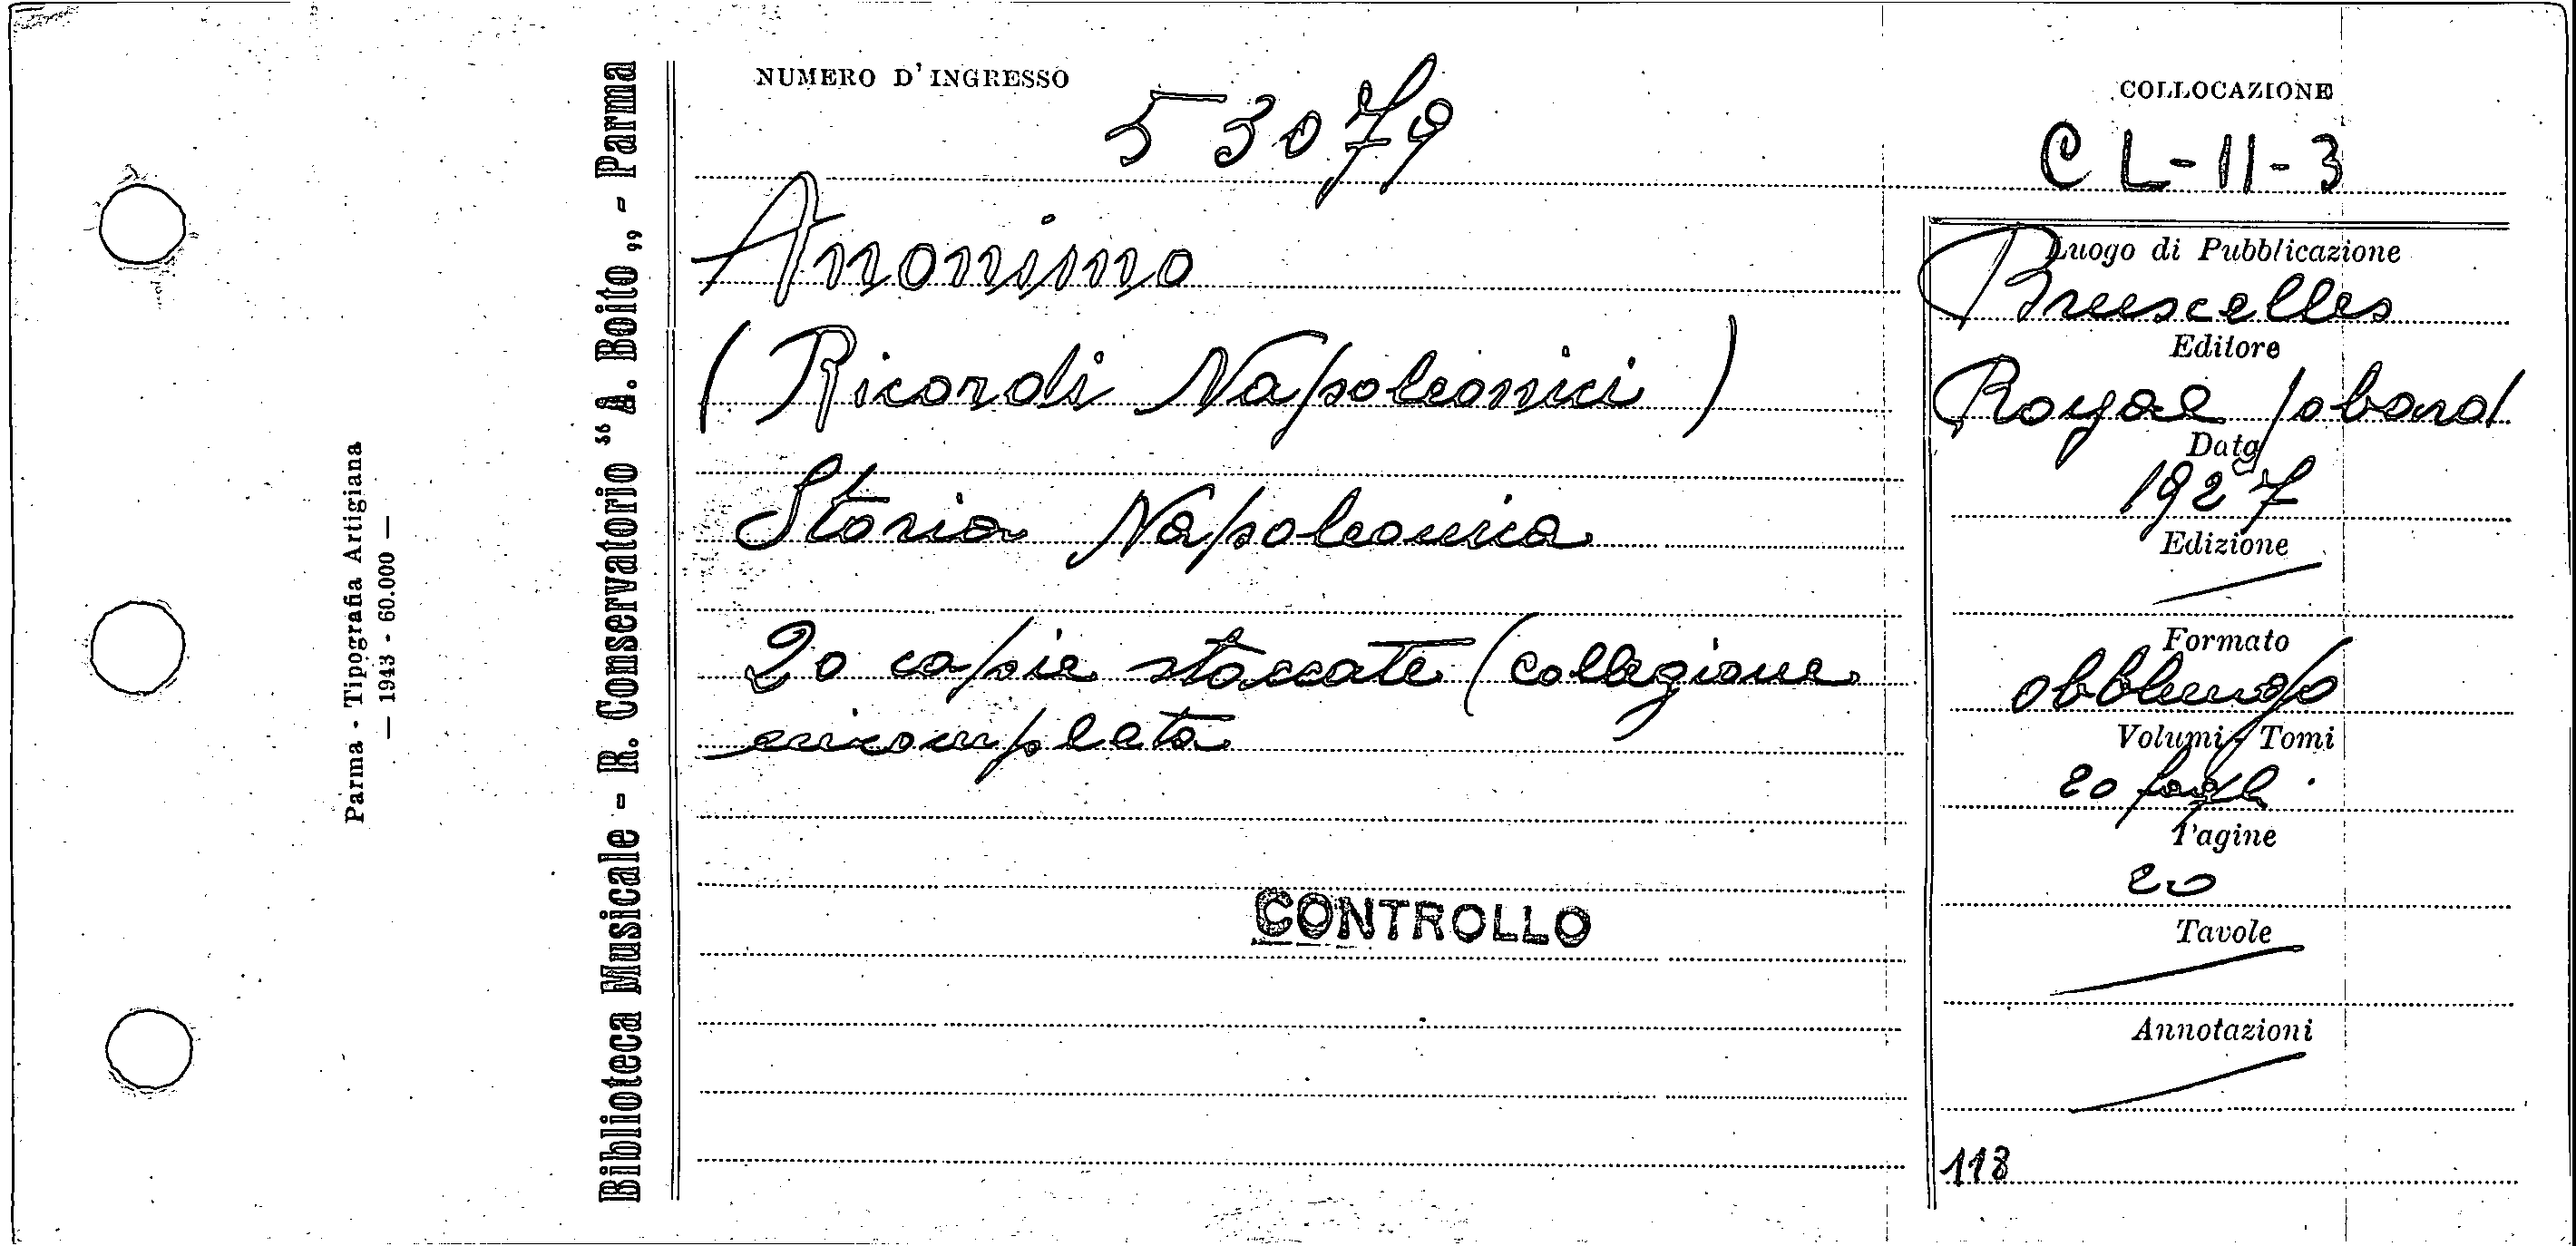 NUMERO D'INGRESSO
53079
COLLOCAZIONE
CL-11-3
Anonimo
(Ricordi Napoleonici)
Storia Napoleonica
20 copie staccate (collezione
incompleta
CONTROLLO
Luogo di Pubblicazione
Bruscelles
Editore
Royal
Data
1927
Edizione
Formato
Volumi - Tomi
20 fogli
Pagine
20
Tavole
Annotazioni
118
Biblioteca Musicale - R. Conservatorio “A. Boito„ - Parma
Parma - Tipografia Artigiana
— 1943 - 60.000 —